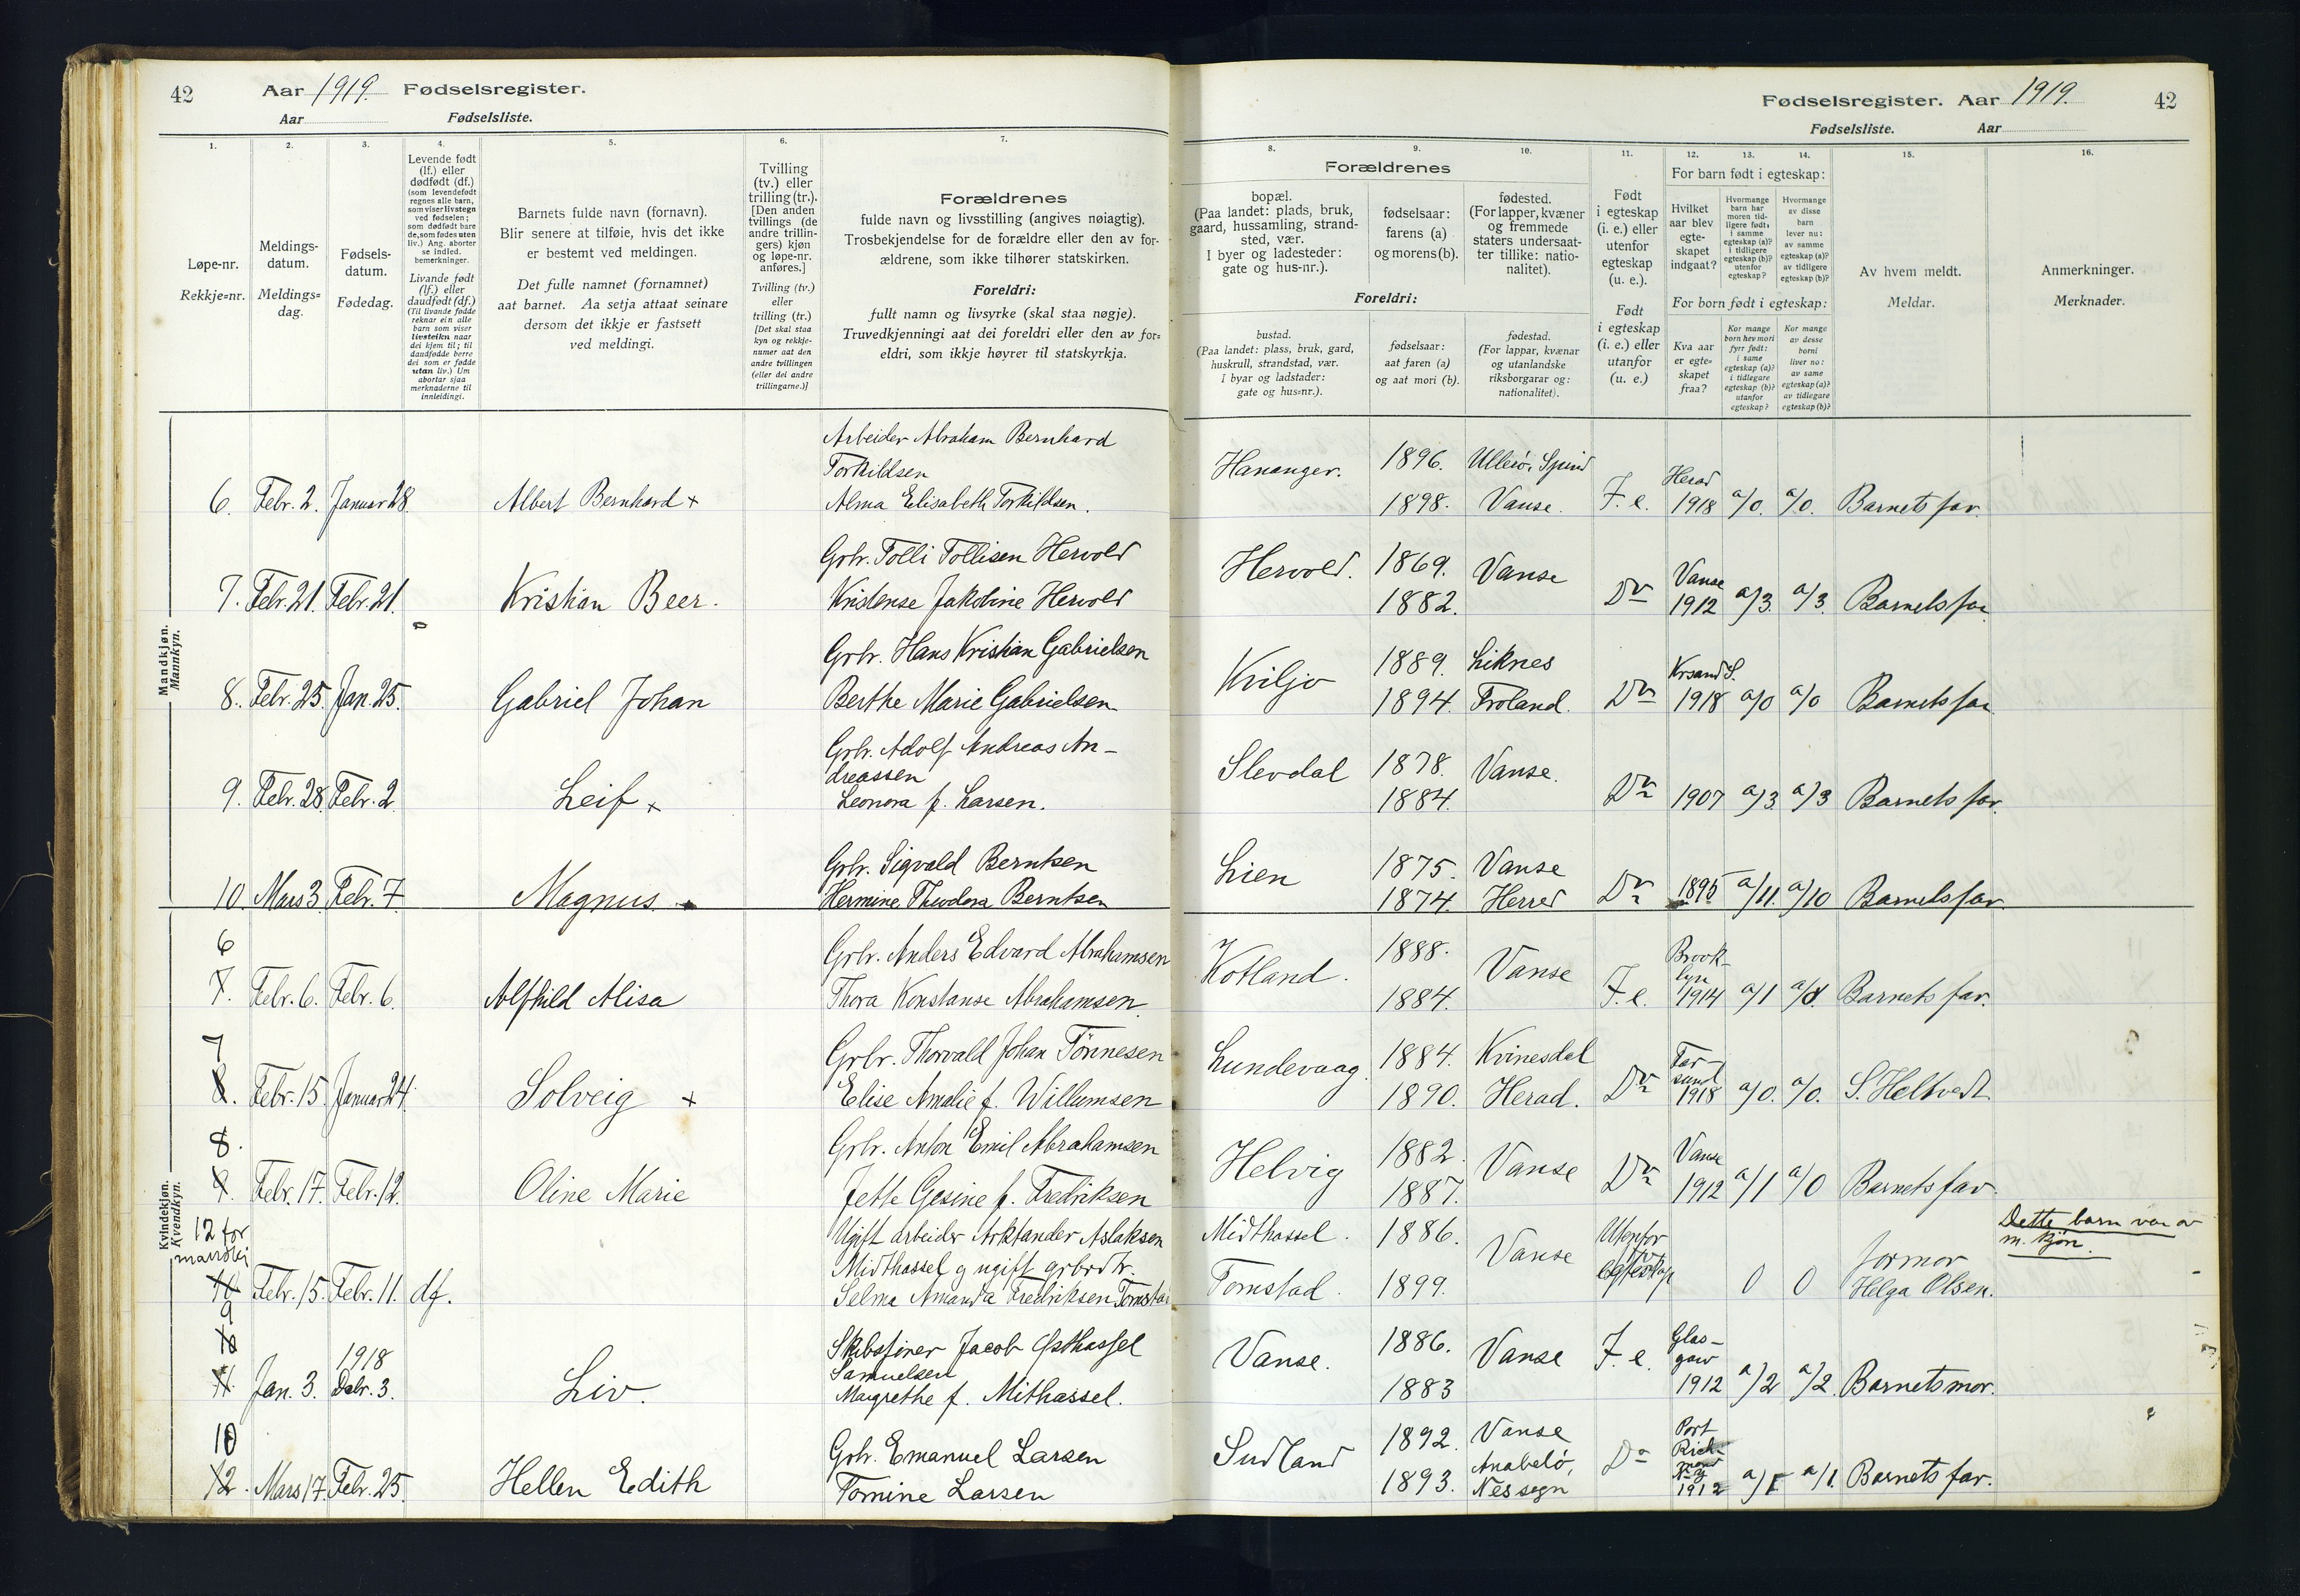 42 Aar 1919. Fødselsregister.
Aar Fødselsliste.
Fødselsregister. Aar 1919. 42
Fødselsliste. Aar
1.
2.
3.
4.
5.
6.
7.
Løpe-nr.
Rekkje=nr.
Meldings-
datum.
Meldings=
dag.
Fødsels-
datum.
Fødedag.
Levende født
(lf.) eller
dødfødt (df.)
(som levendefødt
regnes alle barn,
som viser livstegn
ved fødselen;
som dødfødt bare
de, som fødes uten
liv.) Ang. aborter
se indled.
bemerkninger.
Livande født
(lf.) eller
daudfødt (df.)
(Til livande fødde
reknar ein alle
barn som viser
livsteikn naar
dei kjem til; til
daudfødde berre
dei som er fødde
utan liv.) Um
abortar sjaa
merknaderne til
innleidingi.
Barnets fulde navn (fornavn).
Blir senere at tilføie, hvis det ikke
er bestemt ved meldingen.
Det fulle namnet (fornamnet)
aat barnet. Aa setja attaat seinare
dersom det ikkje er fastsett
ved meldingi.
Tvilling
(tv.) eller
trilling (tr.).
[Den anden
tvillings (de
andre trillin-
gers) kjøn
og løpe-nr.
anføres.]
Tvilling (tv.)
eller
trilling (tr.)
[Det skal staa
kyn og rekkje-
numer aat den
andre tvillingen
(eller dei andre
trillingarne.)]
Forældrenes
fulde navn og livsstilling (angives nøiagtig).
Trosbekjendelse for de forældre eller den av for-
ældrene, som ikke tilhører statskirken.
Foreldri:
fullt namn og livsyrke (skal staa nøgje).
Truvedkjenningi aat dei foreldri eller den av for=
eldri, som ikkje høyrer til statskyrkja.
8.
9.
10.
11.
12.
13.
14.
15.
16.
Forældrenes
bopæl.
(Paa landet: plads, bruk,
gaard, hussamling, strand-
sted, vær.
I byer og ladesteder:
gate og hus-nr.).
fødselsaar:
farens (a)
og morens (b).
fødested.
(For lapper, kvæner
og fremmede
staters undersaat-
ter tillike: natio-
nalitet).
Foreldri:
bustad.
(Paa landet: plass, bruk, gard,
huskrull, strandstad, vær.
I byar og ladstader:
gate og hus=nr.).
fødselsaar:
aat faren (a)
og aat mori (b).
fødestad.
(For lappar, kvænar
og utanlandske
riksborgarar og:
nationalitet).
Født
i egteskap
(i. e.) eller
utenfor
egteskap
(u. e.).
Født
i egteskap
(i. e.) eller
utanfor
(u. e.)
For barn født i egteskap:
Hvilket
aar blev
egte-
skapet
indgaat?
Hvormange
barn har
moren tid-
ligere født:
i samme
egteskap (a)?
i tidligere
egteskap (b)?
utenfor
egteskap?
Hvormange
av disse
barn
lever nu:
av samme
egteskap (a)?
av tidligere
egteskap (b)?
For born født i egteskap:
Kva aar
er egte=
skapet
fraa?
Kor mange
born hev mori
fyrr født:
i same
egteskap (a)?
i tidlegare
egteskap (b)?
utanfor
egteskap?
Kor mange
av desse
borni
liver no:
av same
egteskap (a)?
av tidlegare
egteskap (b)?
Av hvem meldt.
Meldar.
Anmerkninger.
Merknader.
Mandkjøn.
Mannkyn.
Arbeider Abraham Bernhard
Torkildsen
6. Febr. 2. Januar 28. Albert Bernhard + Alma Elisabeth Torkildsen.
Hananger. 1896. Ullerø, Spind
1898. Vanse. F. e. Herad 1918 a/0. a/0. Barnets far.
Grbr. Tolli Tollisen Hervold
7. Febr. 21. Febr. 21. Kristian Beer. Kristense Jakobine Hervold
Hervold. 1869. Vanse
1882. Do Vanse 1912 a/3. a/3. Barnets far
Grbr. Hans Kristian Gabrielsen
8. Febr. 25. Jan. 25. Gabriel Johan Berthe Marie Gabrielsen
Kviljo 1889. Liknes
1894. Froland. Do Krsand S. 1918 a/0 a/0 Barnets far
Grbr. Adolf Andreas An-
dreassen
9. Febr. 28. Febr. 2. Leif + Leonora f. Larsen.
Slevdal 1878. Vanse.
1884. Do 1907 a/3 a/3 Barnets far.
Grbr. Sigvald Berntsen
10. Mars 3. Febr. 7. Magnus. + Hermine Theodora Berntsen
Lien 1875. Vanse
1874. Herred Do 1895 a/11. a/10 Barnets far.
Kvindekjøn.
Kvendkyn.
6 Grbr. Anders Edvard Abrahamsen
7. Febr. 6. Febr. 6. Alfhild Alisa Thora Konstanse Abrahamsen.
Kotland. 1888. Vanse
1884. F. e. Brook-
lyn
1914 a/1 Barnets far.
7 Grbr. Thorvald Johan Tönnesen
8. Febr. 15. Januar 24. Solveig + Elise Amalie f. Willumsen
Lundevaag. 1884. Kvinesdal
1890. Herad. Do Far-
sund
1918 a/0. a/0. S. Heltvedt.
8. Grbr. Anton Emil Abrahamsen
9. Febr. 17. Febr. 12. Oline Marie Jette Gesine f. Fredriksen
Helvig 1882. Vanse
1887. Do Vanse 1912 a/1 a/0 Barnets far.
12 for
mandkj
10 Febr. 15. Febr. 11. df.
Ugift arbeider Arktander Aslaksen
Midthassel og ugift grbrdtr.
Selma Amanda Fredriksen Tomstad
Midthassel. 1886. Vanse
Tomstad. 1899. Utenfor
egteskap 0 0 formor
Helga Olsen.
Dette barn var av
m. kjøn.
9
10
11. Jan. 3. 1918 Debr. 3. Liv.
Skibsfører Jacob Østhassel
Samuelsen
Margrethe f. Mithassel.
Vanse. 1886. Vanse F. e. Glas-
gow
1883 1912 a/2 a/2. Barnets mor.
10 Grbr. Emanuel Larsen
12. Mars 17. Febr. 25. Hellen Edith Tomine Larsen
Sudland 1892. Vanse
1893. Anabelø,
Nes sogn Do Port
Rich-
mond
N.Y.
1912 a/1 a/1. Barnets far.